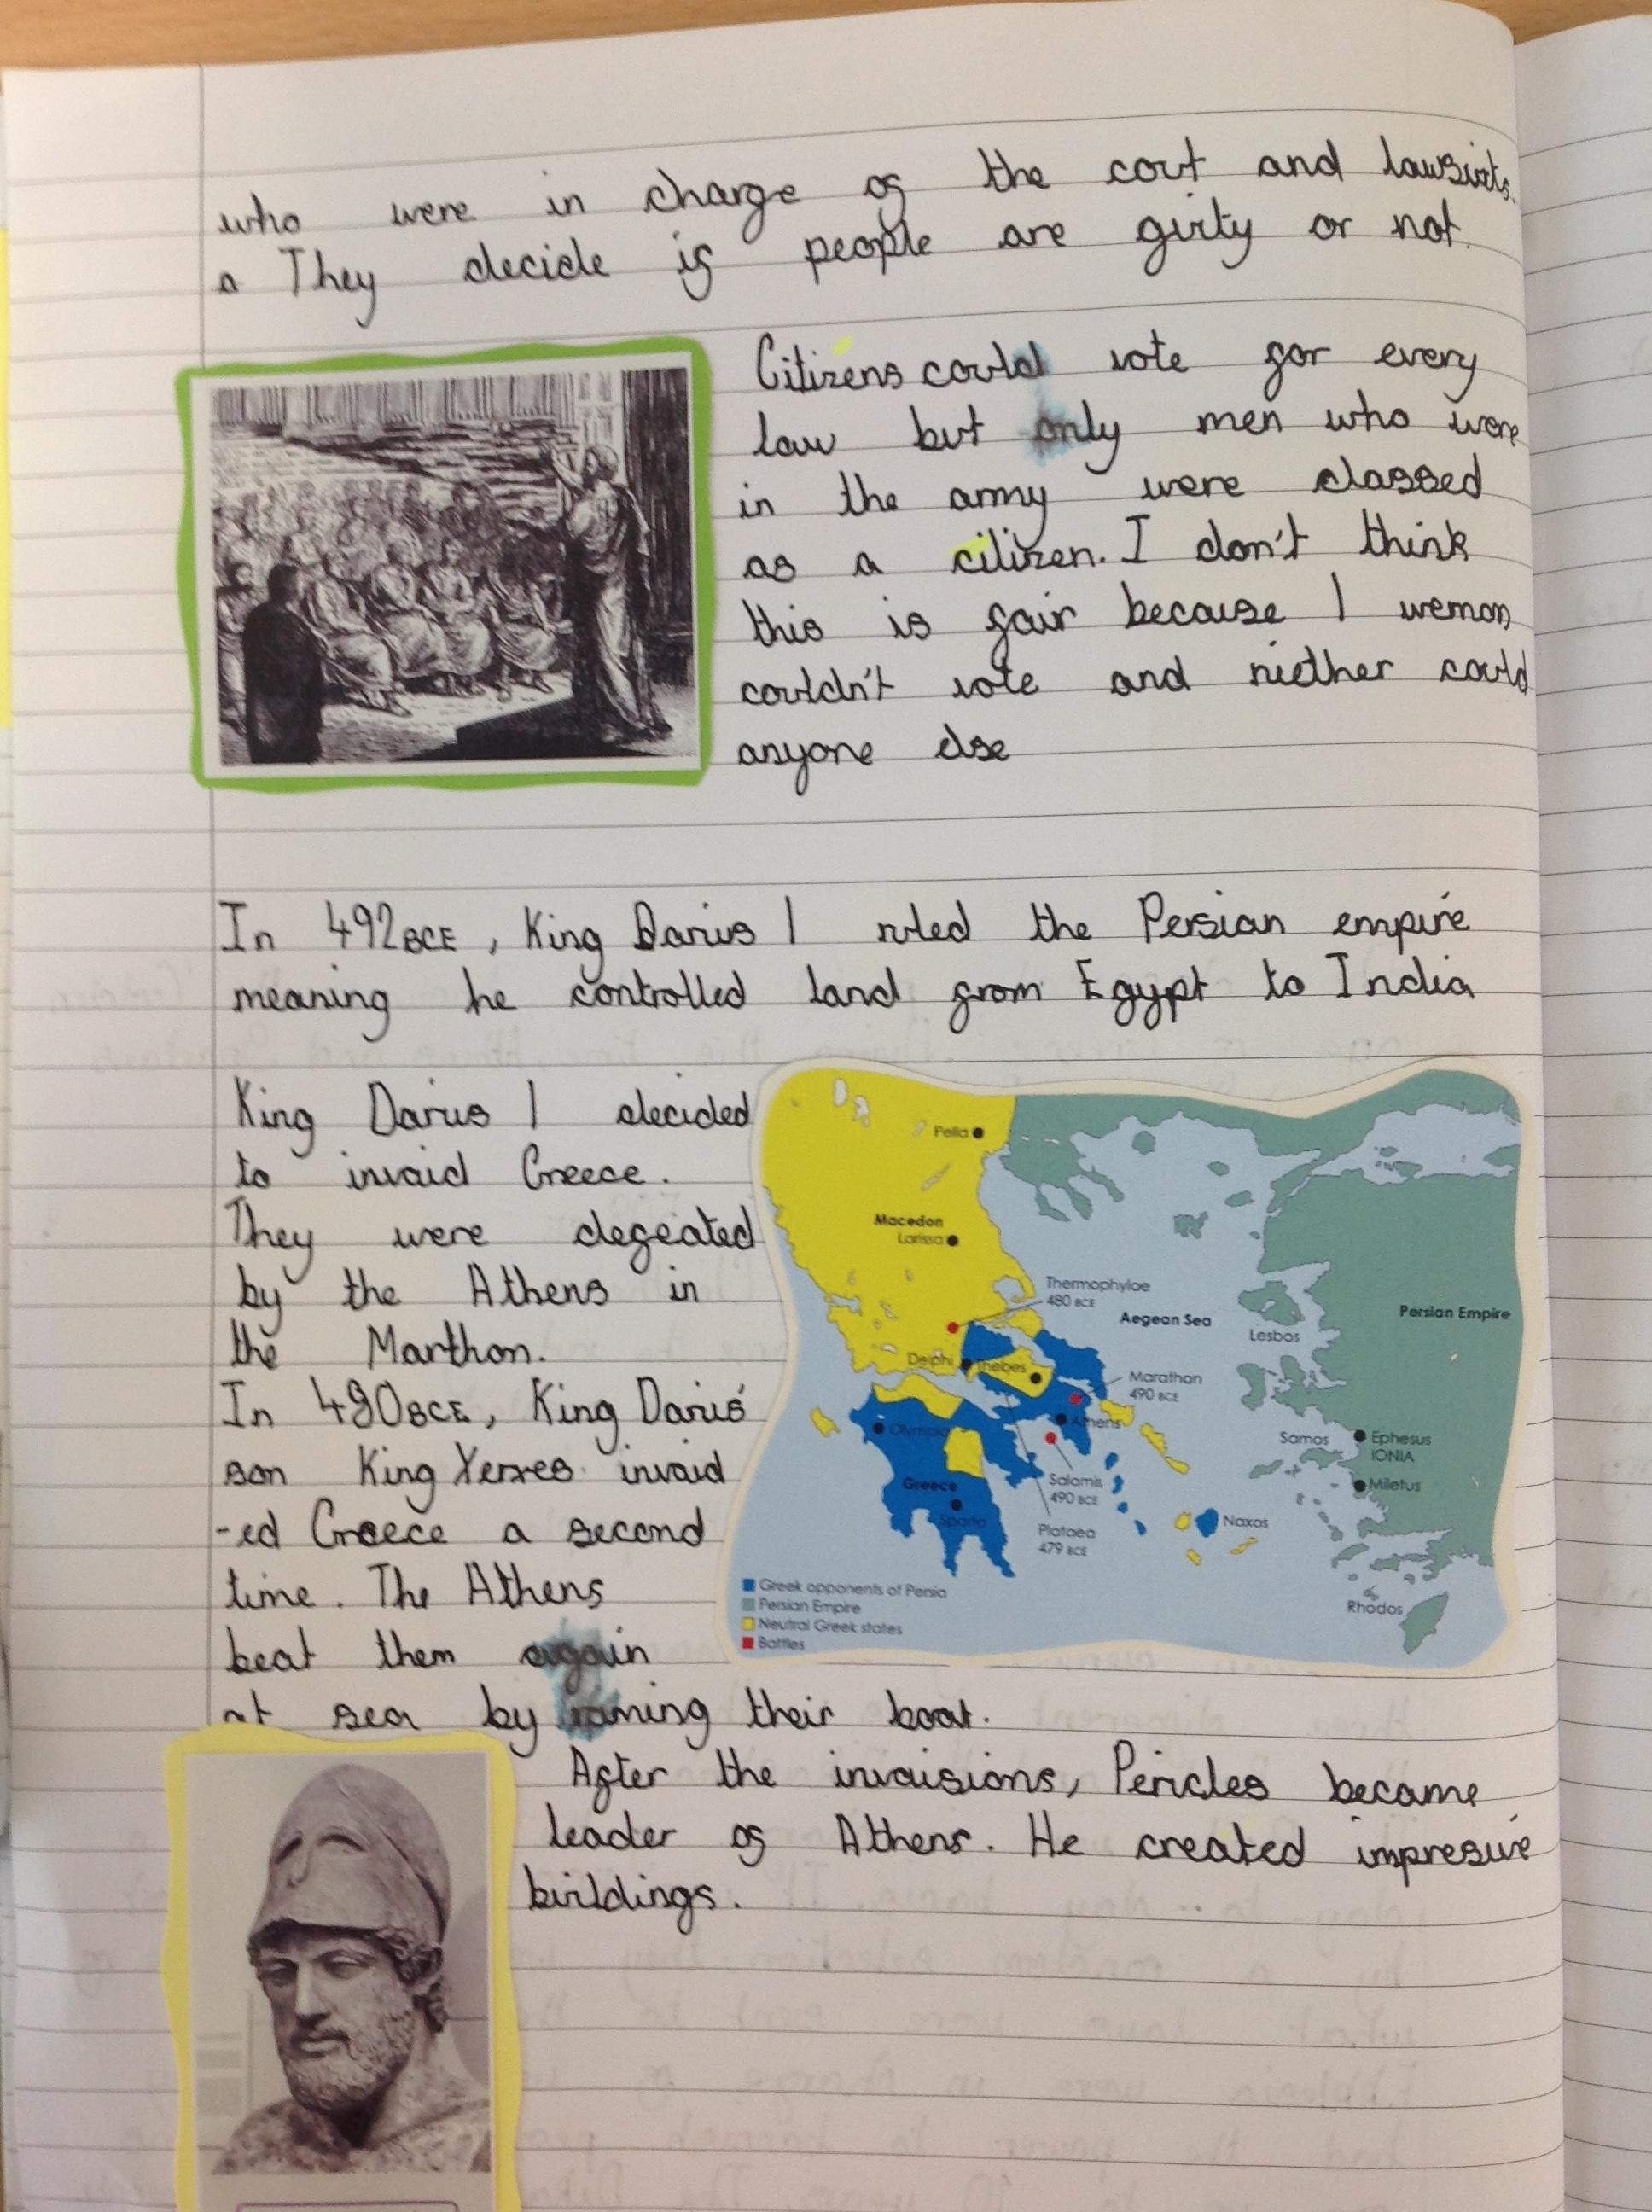 who were in charge of the cort and lawsuits.
a They decide if people are girlty or not.
Citizens could vote for every
law but only men who were
in the army were classed
as a citizen. I don't think
this is fair because I wemon
couldn't vote and niether could
anyone else
In 492BCE, King Darius I ruled the Persian empire
meaning he controlled land from Egypt to India
King Darius I decided
to invaid Greece.
They were defeated
by the Athens in
the Marthon.
In 490BCE, King Daris'
son King Xerxes invaid
-ed Greece a second
time. The Athens
beat them again
at sea by raming their boat.
Pella
Macedon
Larissa
Thermophylae
480 BCE
Aegean Sea
Persian Empire
Lesbos
Delphi
Thebes
Marathon
490 BCE
Athens
Olympia
Samos
Ephesus
IONIA
Miletus
Salamis
490 BCE
Greece
Sparta
Plataea
479 BCE
Naxos
Rhodos
Greek opponents of Persia
Persian Empire
Neutral Greek states
Battles
After the invaisions, Pericles became
leader of Athens. He created impresive
buildings.